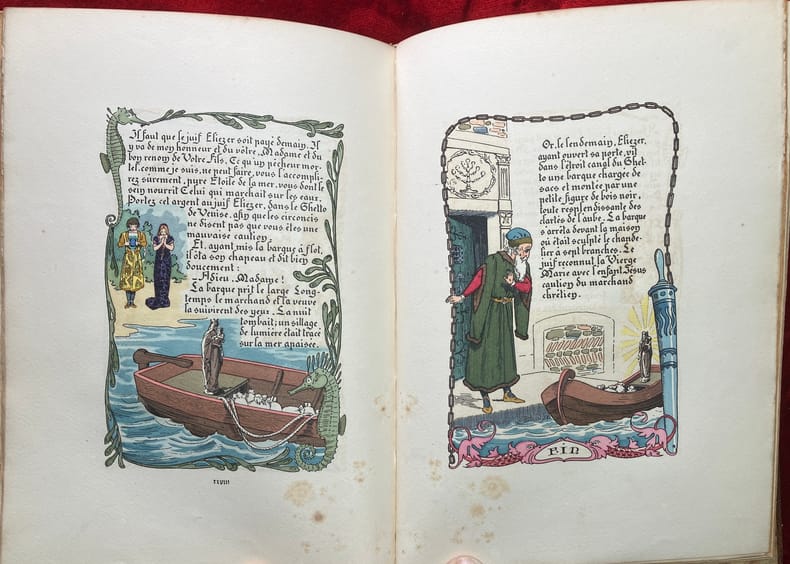 Il faut que le juif Eliezer soit payé demain. Il
y va de mon honneur et du vôtre, Madame et du
bon renom de Votre Fils. Ce qu'un pêcheur mor-
tel, comme je suis, ne peut faire, vous l'accompli-
rez sûrement, pure Étoile de la mer, vous dont le
sein nourrit Celui qui marchait sur les eaux.
Portez cet argent au juif Eliezer, dans le Ghetto
de Venise, afin que les circoncis
ne disent pas que vous êtes une
mauvaise caution.
Et, ayant mis la barque à flot,
il ôta son chapeau et dit bien
doucement:
— Adieu, Madame!
La barque prit le large. Long-
temps le marchand et la veuve
la suivirent des yeux. La nuit
tombait; un sillage
de lumière était tracé
sur la mer apaisée.
xxviii
Or, le lendemain, Eliezer,
ayant ouvert sa porte, vit
dans l'étroit canal du Ghet-
to une barque chargée de
sacs et montée par une
petite figure de bois noir,
toute resplendissante des
clartés de l'aube. La barque
s'arrêta devant la maison
où était sculpté le chande-
lier à sept branches. Le
juif reconnut la Vierge
Marie avec l'enfant Jésus
caution du marchand
chrétien.
FIN